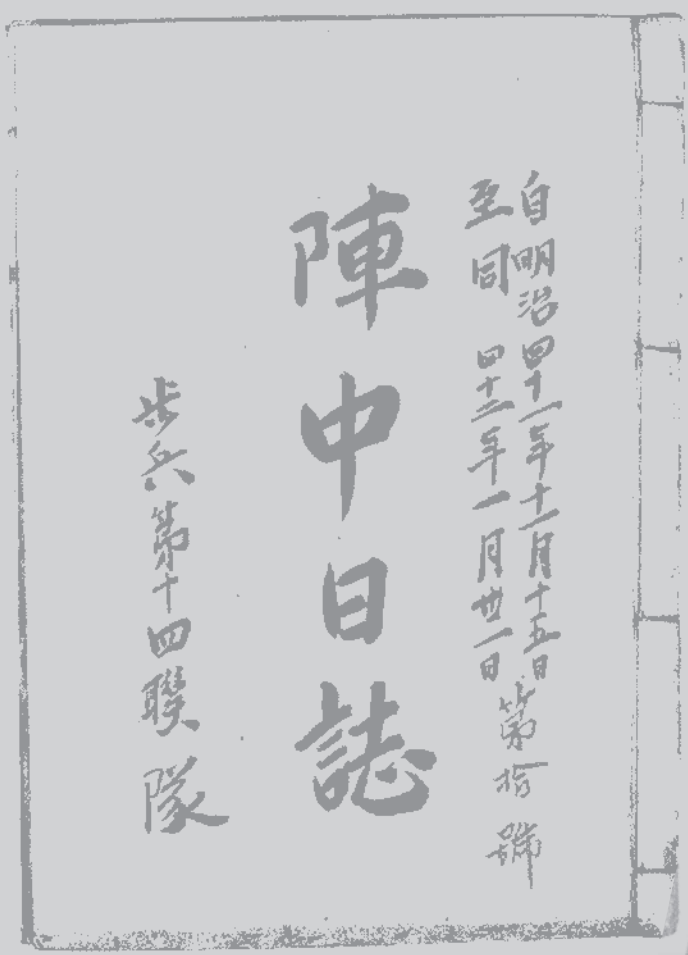 自明治四十一年十一月十五日
至同四十二年一月卅一日
第拾號
陣中日誌
歩兵第十四聯隊